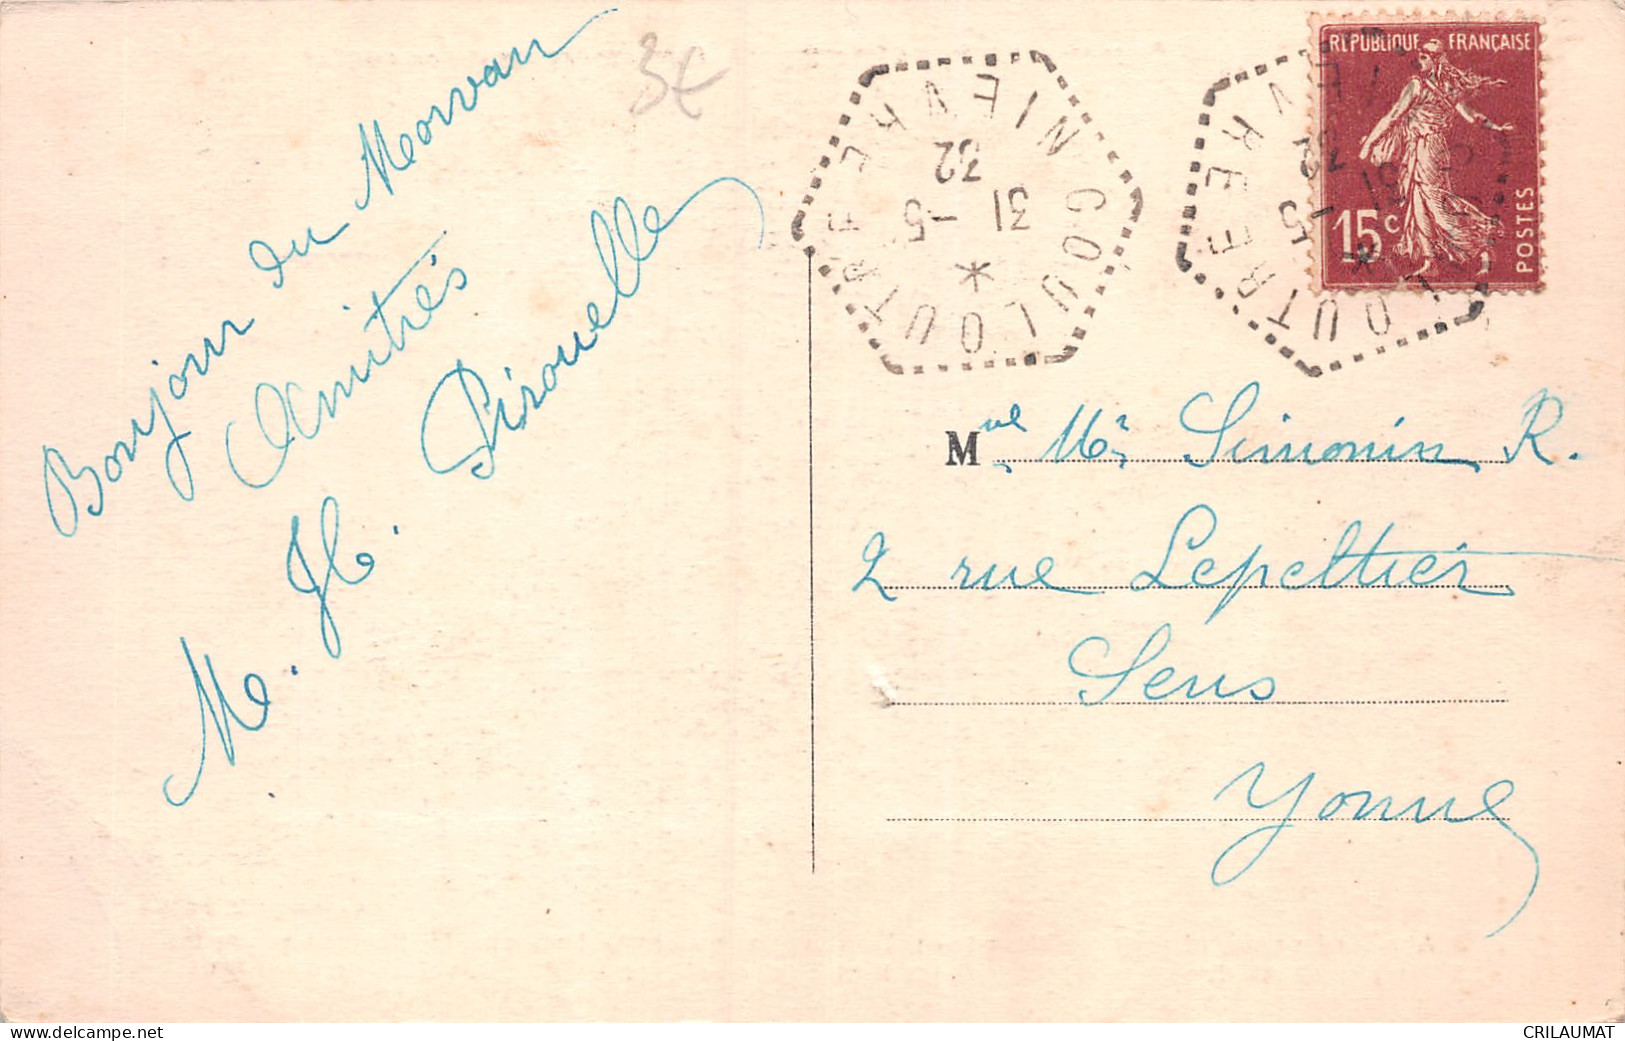 Bonjour du Morvan
Amitiés
M. H. Pirouelle
3€
GOULOUTRE NIEVRE
31 -5
32
*
GOULOUTRE NIEVRE
31 -5
32
*
REPUBLIQUE FRANÇAISE
15c
POSTES
M Mr Simonin R.
2 rue Lepeltier
Sens
Yonne
www.delcampe.net
CRILAUMAT